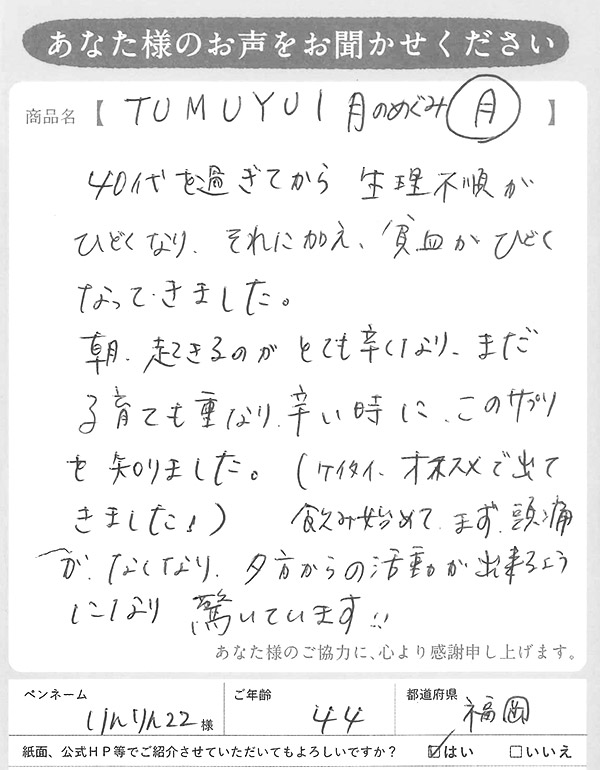 あなた様のお声をお聞かせください
商品名【 TUMUYUI 月のめぐみ 月 】
40代を過ぎてから 生理不順が
ひどくなり、それに加え、貧血がひどく
なってきました。
朝、起きるのがとても辛くなり、まだ
子育ても重なり、辛い時に、このサプリ
を知りました。(ケイタイ、オススメで出て
きました!) 飲み始めて、まず、頭痛
が、なくなり、夕方からの活動が出来るよう
になり 驚いています!!
あなた様のご協力に、心より感謝申し上げます。
ペンネーム ご年齢 都道府県
りんりん22 様 44 福岡
紙面、公式HP等でご紹介させていただいてもよろしいですか? ☑はい □いいえ